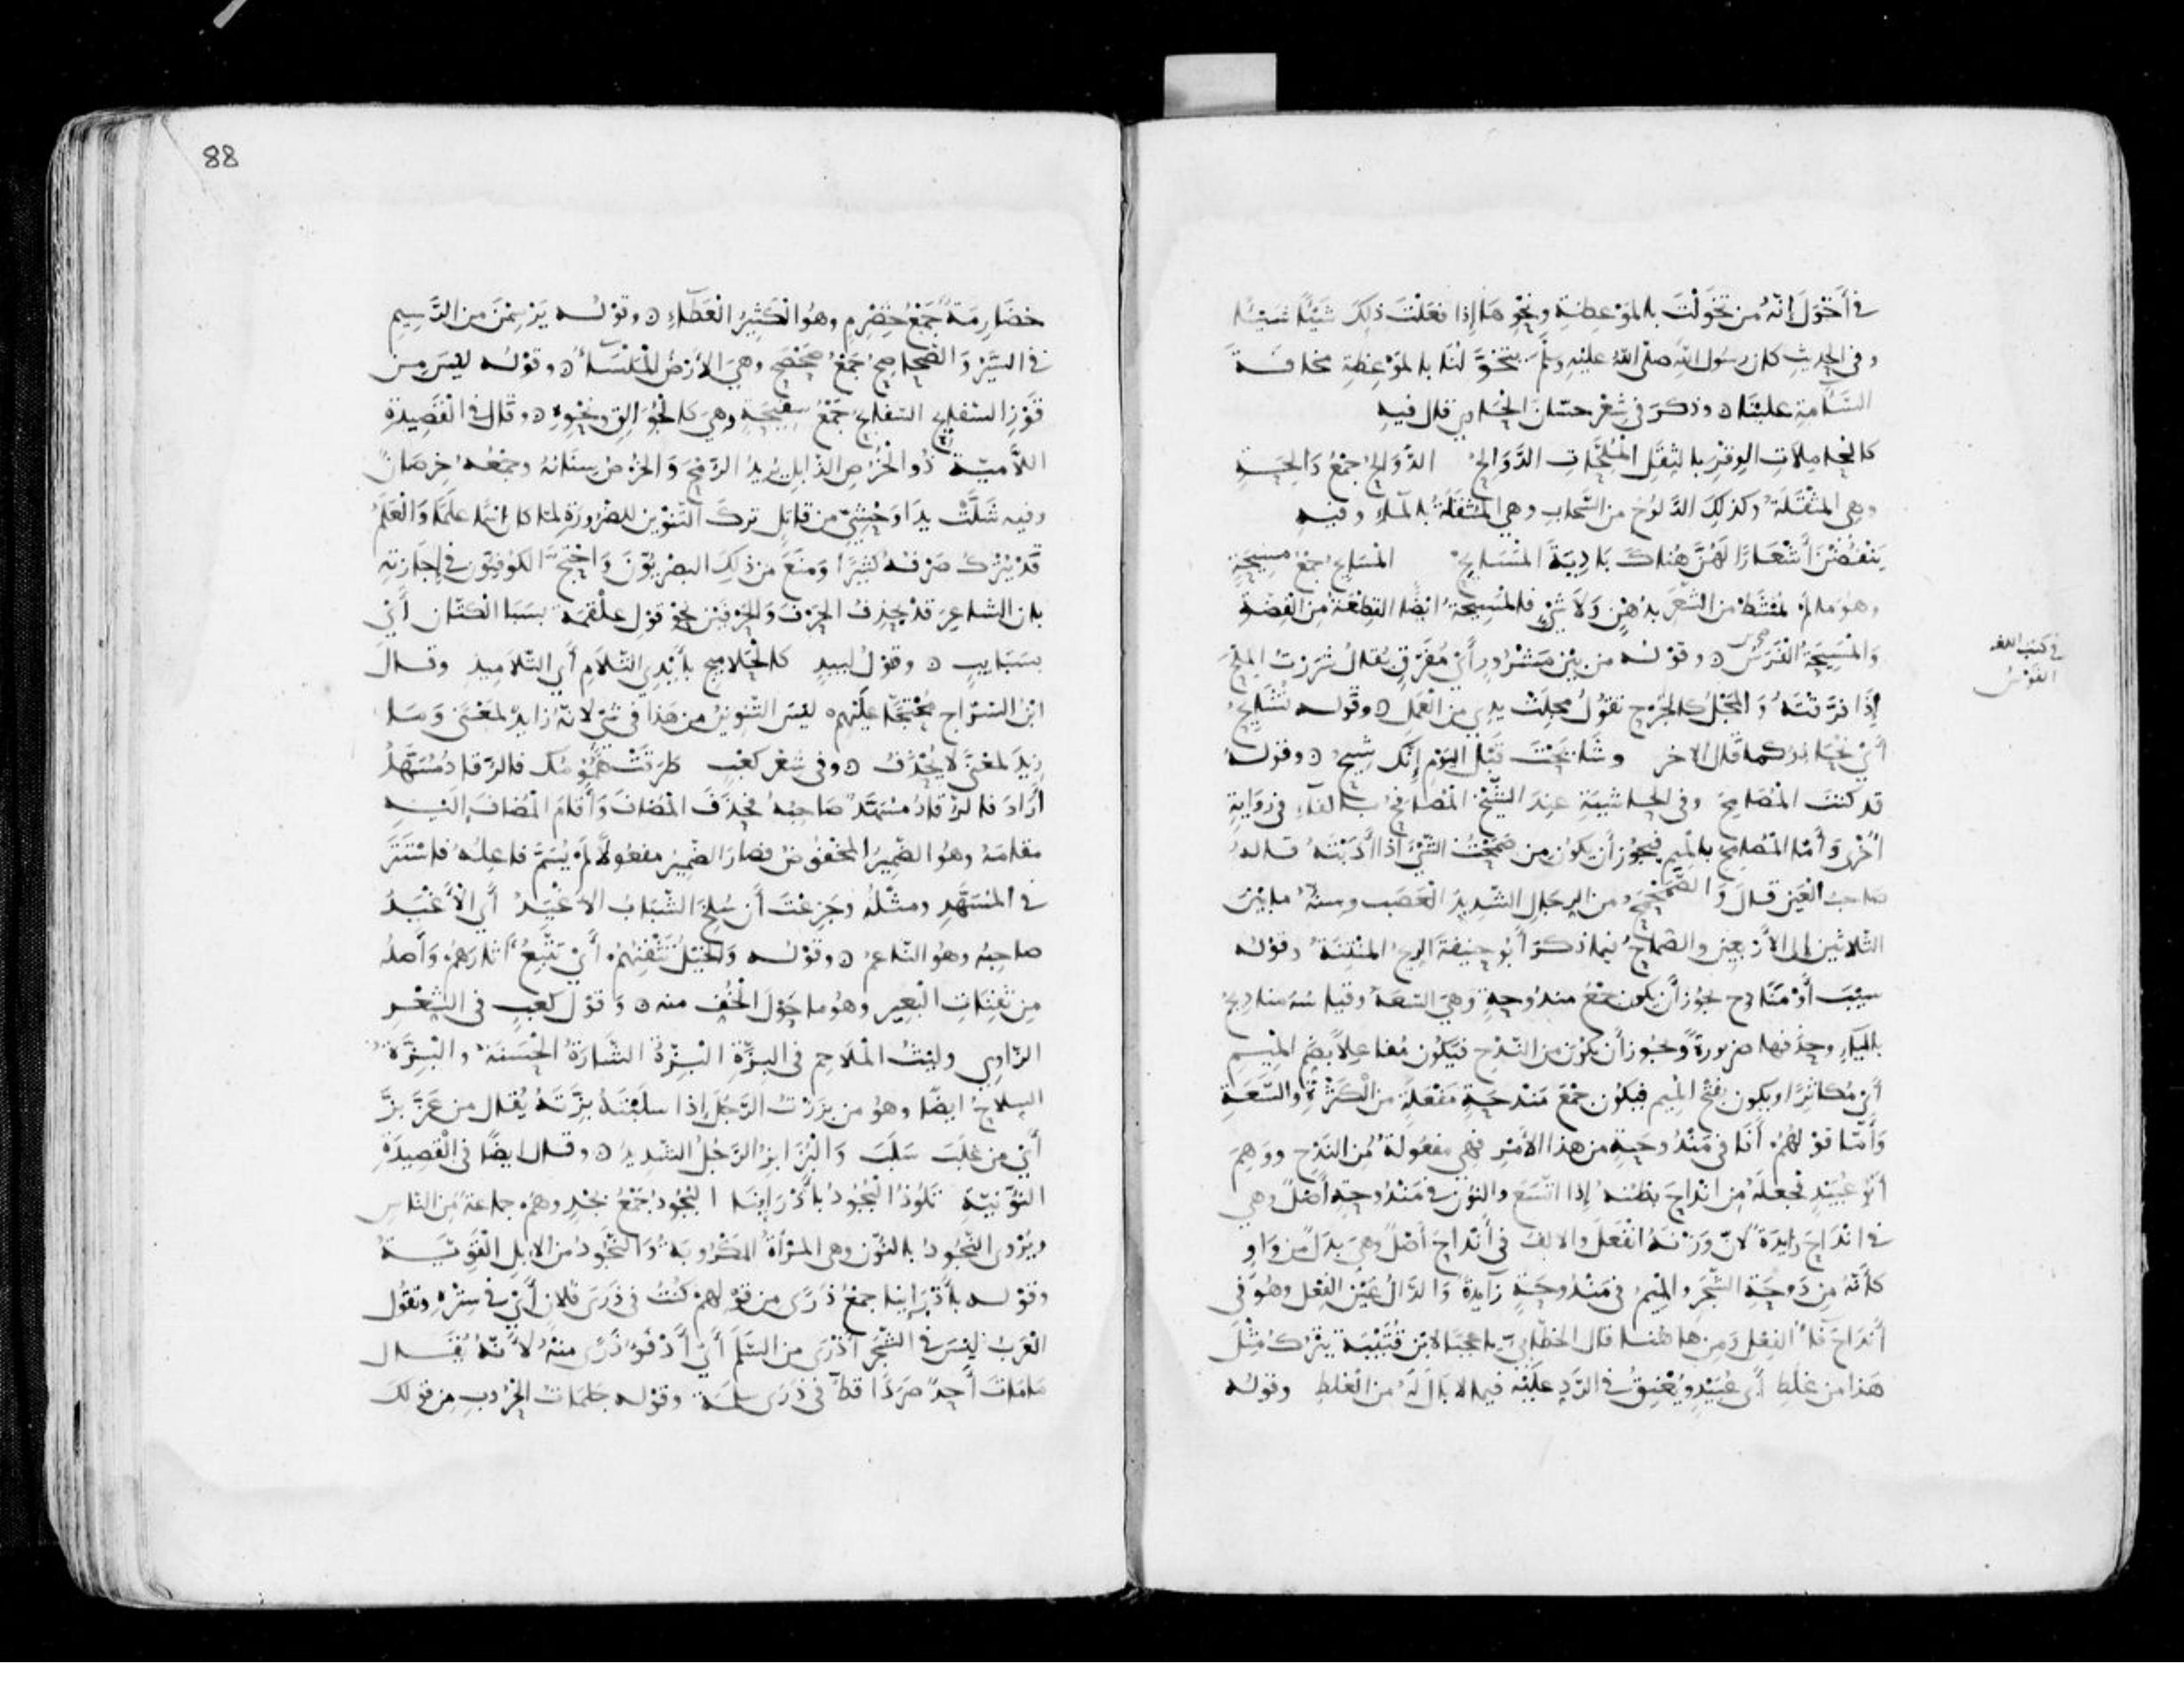 في أخول إنه من تخولت بالموعظة ونحوها إذا فعلت ذلك شيئا شيئا
وفي الحديث كان رسول الله صلى الله عليه وسلم يتخولنا بالموعظة مخافة
السآمة علينا ٥ وذكر في شعر حسان الحاءي قال فيه
كالحاملات الوقر بالثقل الملحات الدوالح الدوالح جمع دالحة
وهي المثقلة وكذلك الدلوح من السحاب وهي المثقلة بالماء وفيه
ينفضن أشعارا لهن هناك بادية المسايح المسايح جمع مسيحة
وهو ما لم يمشط من الشعر بدهن ولا شيء فالمسيحة أيضا القطعة من الفضة
والمسيحة الفرس ٥ وقوله من بين مشزور أي مفرق يقال شررت الملح
في كتب اللغة
القوس
إذا فرقته والمجل كالجرح تقول مجلت يدي من العمل ٥ وقوله نشايح
أي نحاذر كما قال الآخر وشايحت قبل اليوم إنك شيح ٥ وقوله
قد كنت المصامح وفي الحاشية عند الشيخ المصافح بالفاء في رواية
أخرى وأما المصامح بالميم فيجوز أن يكون من صمحت الشيء إذا أذبته قاله
صاحب العين قال والصمحمح من الرجال الشديد العصب وسنه ما بين
الثلاثين إلى الأربعين والصماح فيما ذكر أبو حنيفة الريح المنتنة وقوله
سيب أو منادح يجوز أن يكون جمع مندوحة وهي السعة وقياسه مناديح
بالياء وحذفها ضرورة ويجوز أن يكون من الندح فيكون مفاعلا بضم الميم
أي مكاثرا ويكون بفتح الميم فيكون جمع مندحة مفعلة من الكثرة والسعة
وأما قولهم أنا في مندوحة من هذا الأمر فهي مفعولة من الندح ووهم
أبو عبيد فجعله من انداح بطنه إذا اتسع والنون في مندوحة أصل وهي
في انداح زايدة لأن وزنه انفعل والالف في أنداح أصل وهي بدل من واو
كأنه من دوحة الشجر والميم في مندوحة زايدة والدال عين الفعل وهو في
أنداح فاء الفعل ومن هاهنا قال الخطابي يا عجبا لابن قتيبة يترك مثل
هذا من غلط أبي عبيد ويعنق في الرد عليه فيما لا بال له من الغلط وقوله
88
خضارمة جمع خضرم وهو الكثير العطاء ٥ وقوله يرسمن من الرسيم
في السير والصحاصح جمع صحصح وهي الأرض الملساء ٥ وقوله ليس من
فوز السفايح السفايح جمع سفيحة وهي كالجوالق ونحوه ٥ وقال في القصيدة
اللامية ذو الخرص الذابل يريد الرمح والخرص سنانه وجمعه خرصان
وفيه شلت يدا وحشي من قاتل ترك التنوين للضرورة لما كان اسما علما والعلم
قد يترك صرفه كثيرا ومنع من ذلك البصريون واحتج الكوفيون في إجازته
بان الشاعر قد يحذف الحرف والحرفين نحو قول علقمة بسبا الكتان أي
بسبايب ٥ وقول لبيد كالحلاميج بأيدي التلام أي التلاميذ وقال
ابن السراج محتجا عليهم ليس التنوين من هذا في شيء لأنه زايد لمعنى وما
زيد لمعنى لا يحذف ٥ وفي شعر كعب طرقت همومك فالرقاد مسهد
أراد فالرقاد مسهد صاحبه فحذف المضاف وأقام المضاف اليه
مقامه وهو الضمير المخفوض فصار الضمير مفعولا لم يسم فاعله فاستتر
في المسهد ومثله وجزعت أن سلخ الشباب الأغيد أي الأغيد
صاحبه وهو الناعم ٥ وقوله والخيل تثفنهم أي تتبع آثارهم وأصله
من ثفنات البعير وهو ما حول الخف منه ٥ وقول كعب في الشعر
الزاوي وليث الملاحم في البزة البزة الشارة الحسنة والبزة
السلاح أيضا وهو من بززت الرجل إذا سلبته بزته يقال من عز بز
أي من غلب سلب والبزابز الرجل الشديد ٥ وقال أيضا في القصيدة
النونية تلوذ البجود بأذرائنا البجود جمع بجد وهم جماعة من الناس
ويروى النجود بالنون وهي المرأة المكروبة والنجود من الإبل القوية
وقوله بأذرائنا جمع ذرى من قولهم كنت في ذرى فلان أي في ستره وتقول
العرب ليس في الشجر أذرى من السلم أي أدفؤ ذرى منه لأنه يقال
ما مات أحد صردا قط في ذرى سلمة وقوله جلمات الحروب من قولك